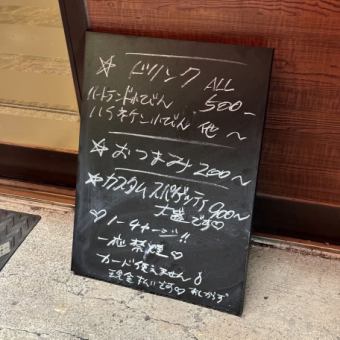 ☆ ドリンク ALL
ハートランド小びん 500-
ハイネケン小びん 他 〜
☆ おつまみ 200〜
☆ カスタムスパゲッティ 900〜
大盛です♡
♡ ノーチャージ!!
一応禁煙♡
カード使えません
現金 です♡ あしからず